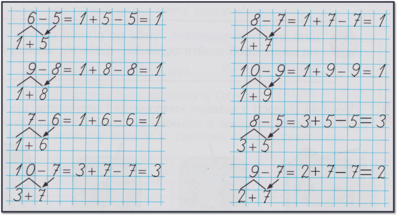 6-5=1+5-5=1
1+5
9-8=1+8-8=1
1+8
7-6=1+6-6=1
1+6
10-7=3+7-7=3
3+7
8-7=1+7-7=1
1+7
10-9=1+9-9=1
1+9
8-5=3+5-5=3
3+5
9-7=2+7-7=2
2+7